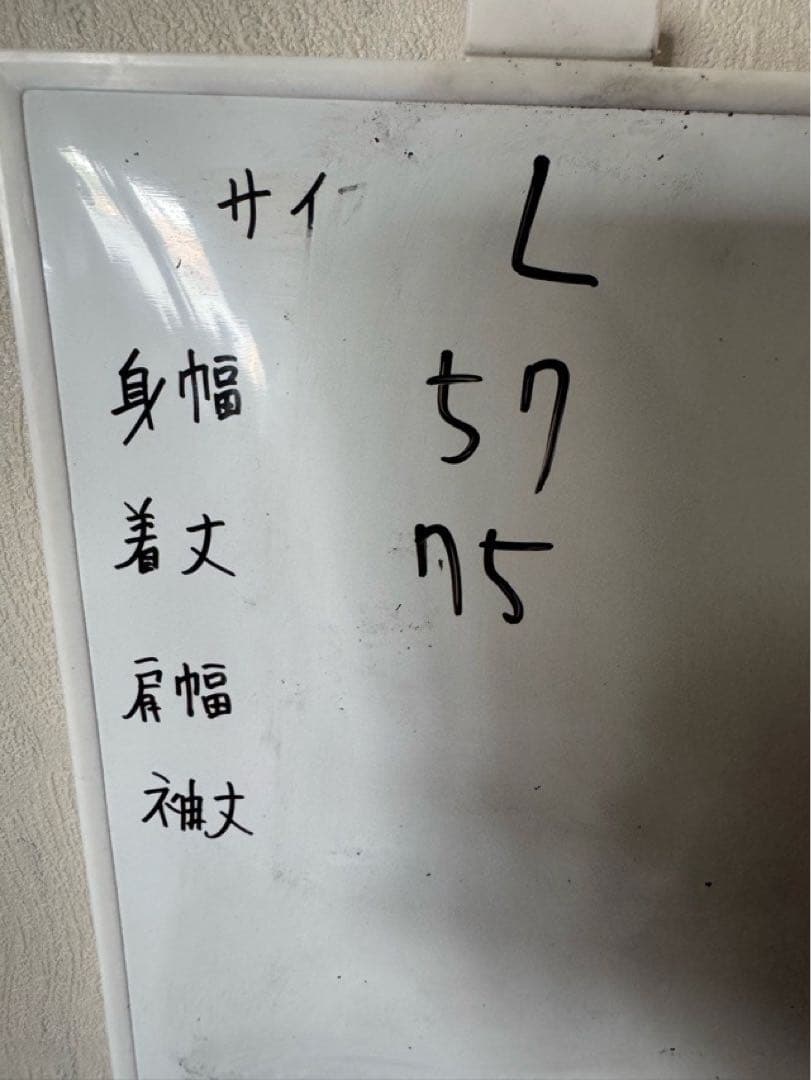 サイ L
身幅 57
着丈 75
肩幅
袖丈